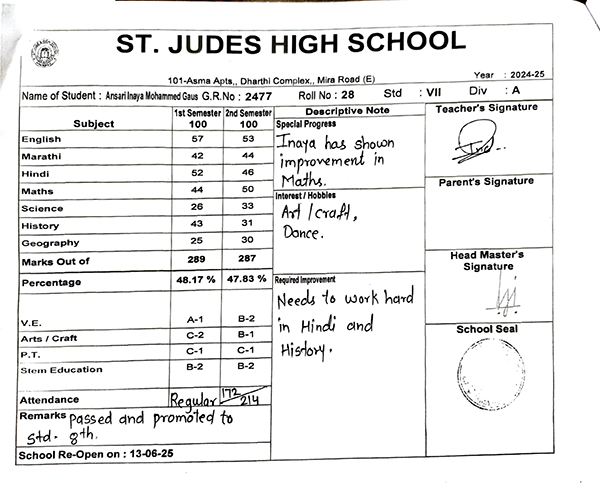 ST. JUDES HIGH SCHOOL
101-Asma Apts,, Dharthi Complex,, Mira Road (E)
Year : 2024-25
Name of Student : Ansari Inaya Mohammed Gaus G.R.No : 2477 Roll No : 28 Std : VII Div : A
Subject 1st Semester 100 2nd Semester 100
English 57 53
Marathi 42 44
Hindi 52 46
Maths 44 50
Science 26 33
History 43 31
Geography 25 30
Marks Out of 289 287
Percentage 48.17 % 47.83 %
V.E. A-1 B-2
Arts / Craft C-2 B-1
P.T. C-1 C-1
Stem Education B-2 B-2
Attendance Regular 172/214
Remarks passed and promoted to
Std. 8th.
School Re-Open on : 13-06-25
Descriptive Note
Special Progress
Inaya has shown
improvement in
Maths.
Interest / Hobbies
Art / craft,
Dance.
Required Improvement
Needs to work hard
in Hindi and
History.
Teacher's Signature
Parent's Signature
Head Master's
Signature
School Seal